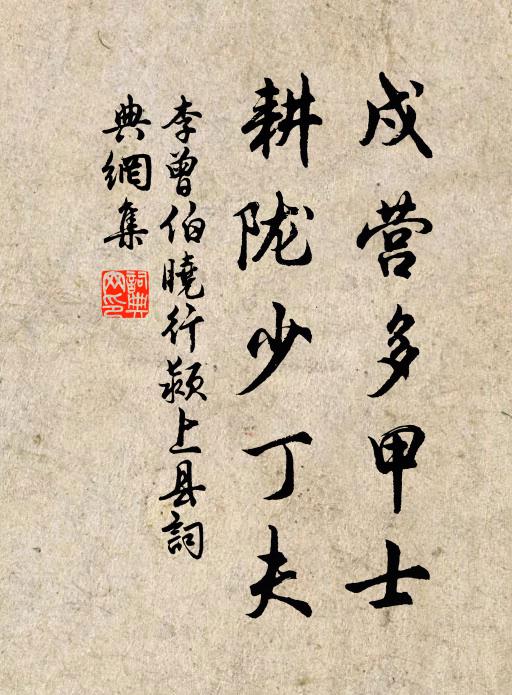 戍营多甲士
耕陇少丁夫
李曾伯曉行颍上县詞
典網集
詞典网印